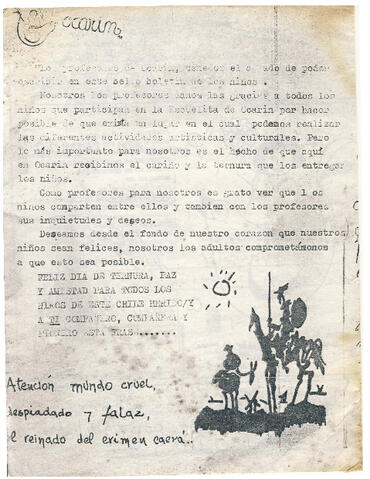 ocarin
Los profesores de Ocarin, tenemos el agrado de poder
escribir en este bello boletin de los niños.
Nosotros los profesores damos las gracias a todos los
niños que participan en la Escuelita de Ocarin por hacer
posible de que exista un lugar en el cual podemos realizar
las diferentes actividades artisticas y culturales. Pero
lo más importante para nosotros es el hecho de que aquí
en Ocarin recibimos el cariño y la ternura que los entregan
los niños.
Como profesores para nosotros es grato ver que los
niños comparten entre ellos y tambien con los profesores
sus inquietudes y deseos.
Deseamos desde el fondo de nuestro corazon que nuestros
niños sean felices, nosotros los adultos comprometámonos
a que esto sea posible.
FELIZ DIA DE TERNURA, PAZ
Y AMISTAD PARA TODOS LOS
HIJOS DE ESTE CHILE HERIDO/Y
A TU COMPAÑERO, COMPAÑERA Y
ESTA FRAS.......
Atención mundo cruel,
despiadado y falaz,
el reinado del crimen caerá..